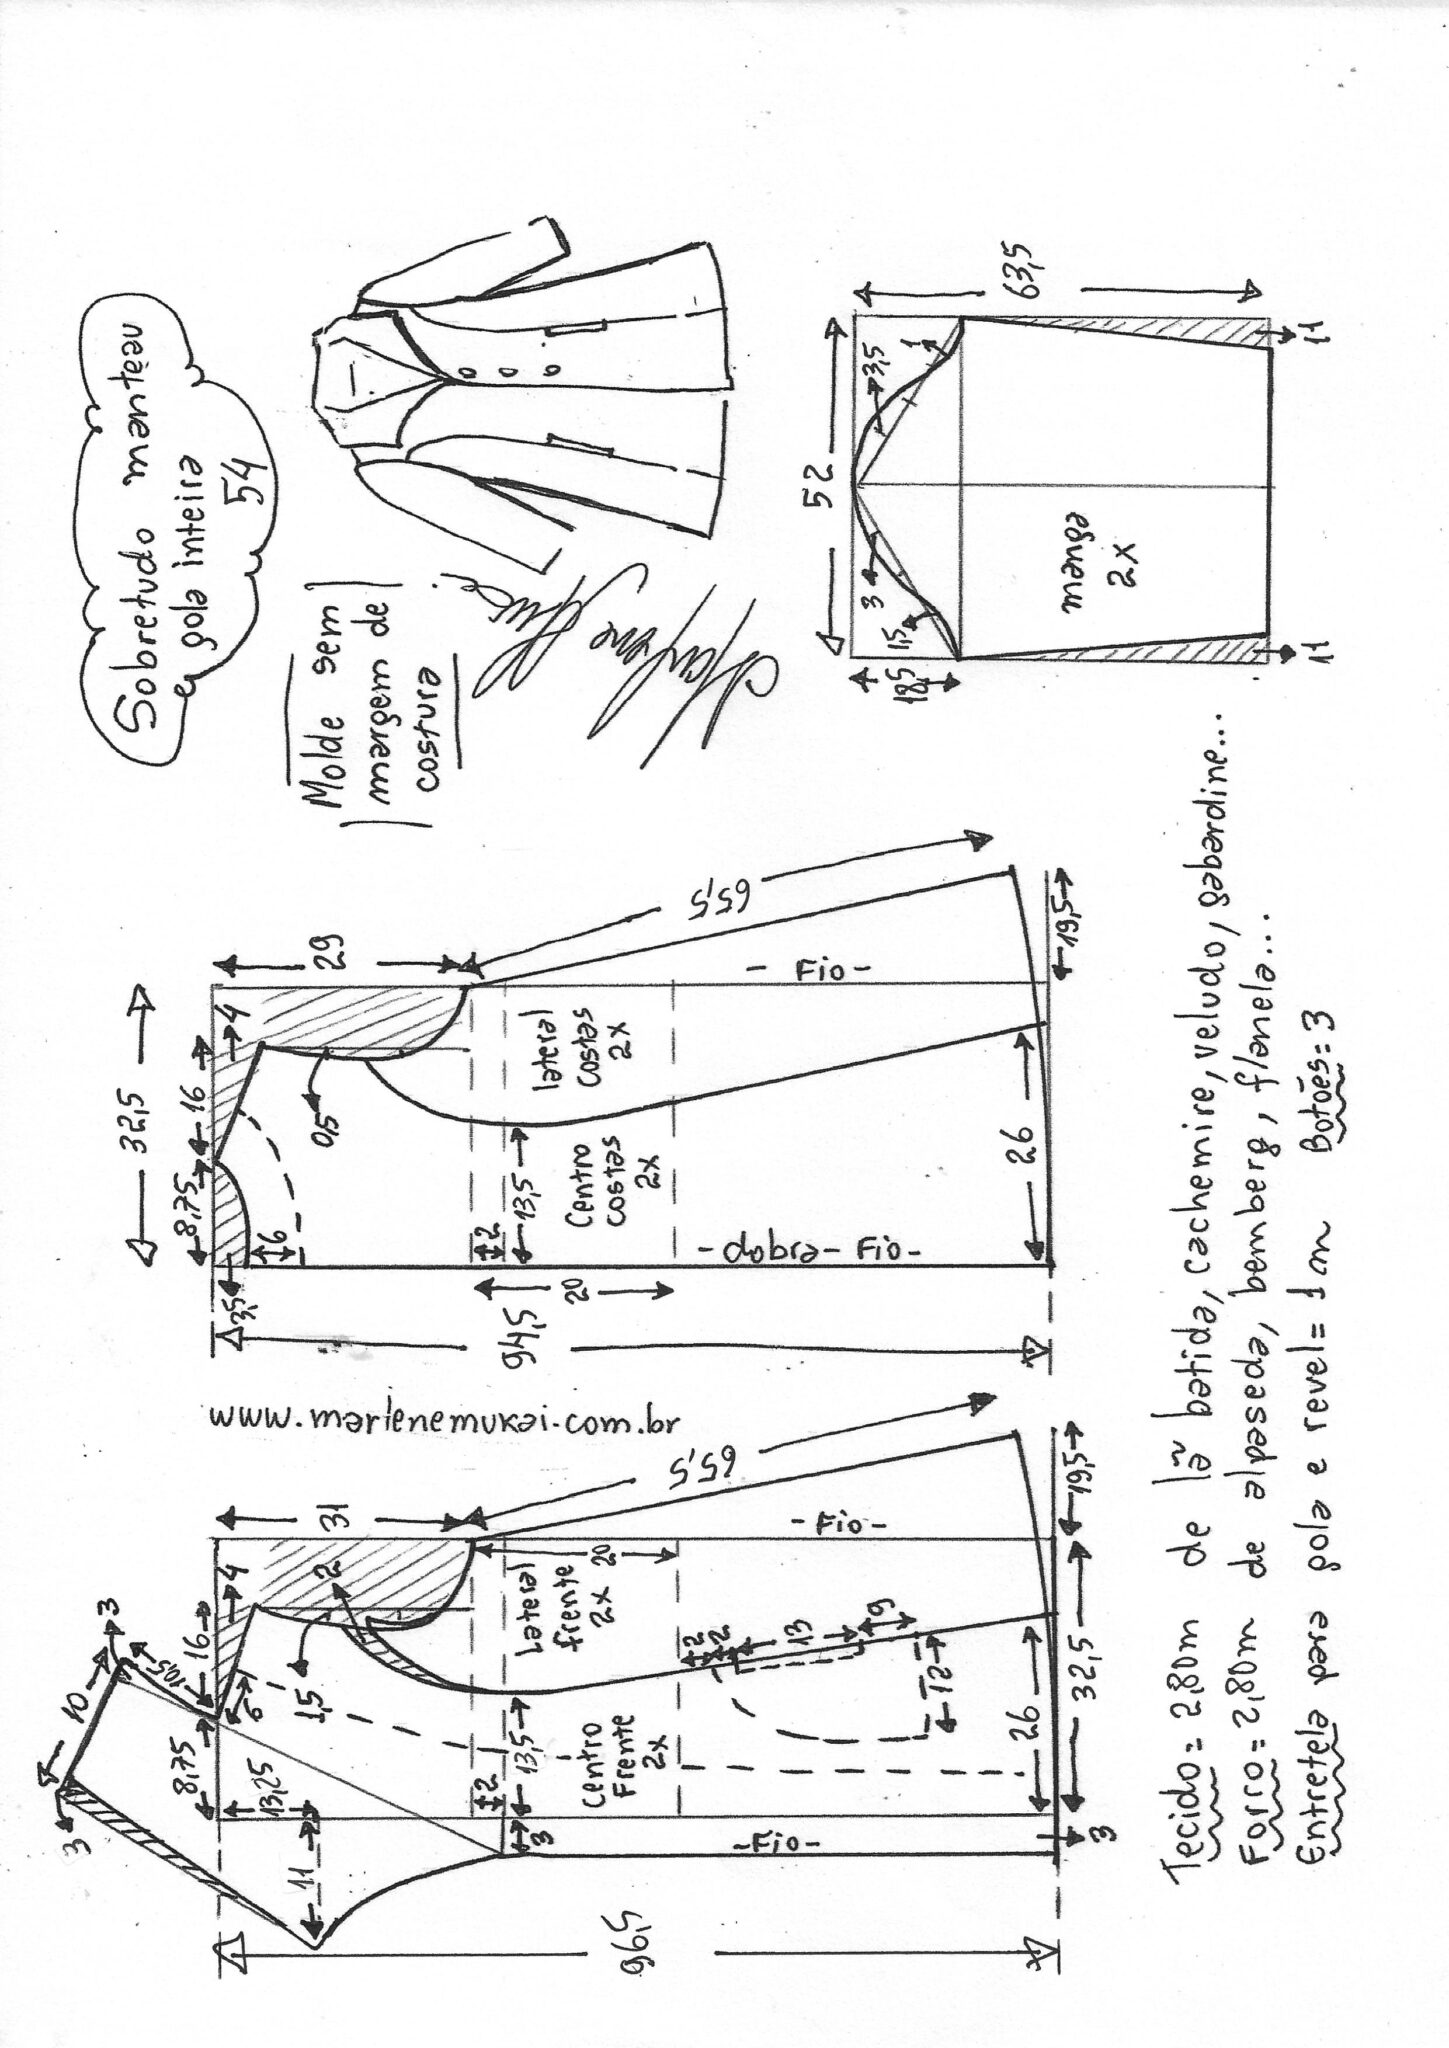 Sobretudo manteau
gola inteira
54
Molde sem
margem de
costura
www.marlenemukai.com.br
96,5
3
10
3
10,5
8,75
16
4
31
13,25
11
6
1,5
2
65,5
2
3
13,5
Centro
Frente
2x
Lateral
frente
2x
20
- Fio -
- Fio -
2
2
13
9
12
26
3
32,5
19,5
32,5
8,75
16
4
29
3,5
6
0,5
65,5
94,5
20
2
13,5
Centro
costas
2x
lateral
costas
2x
- dobra - Fio -
- Fio -
26
19,5
52
63,5
18,5
1,5
3
3,5
1
manga
2x
11
11
Tecido = 2,80m de lã batida, cachemire, veludo, gabardine...
Forro = 2,80m de alpaseda, bemberg, flanela...
Entretela para gola e revel = 1m Botões = 3